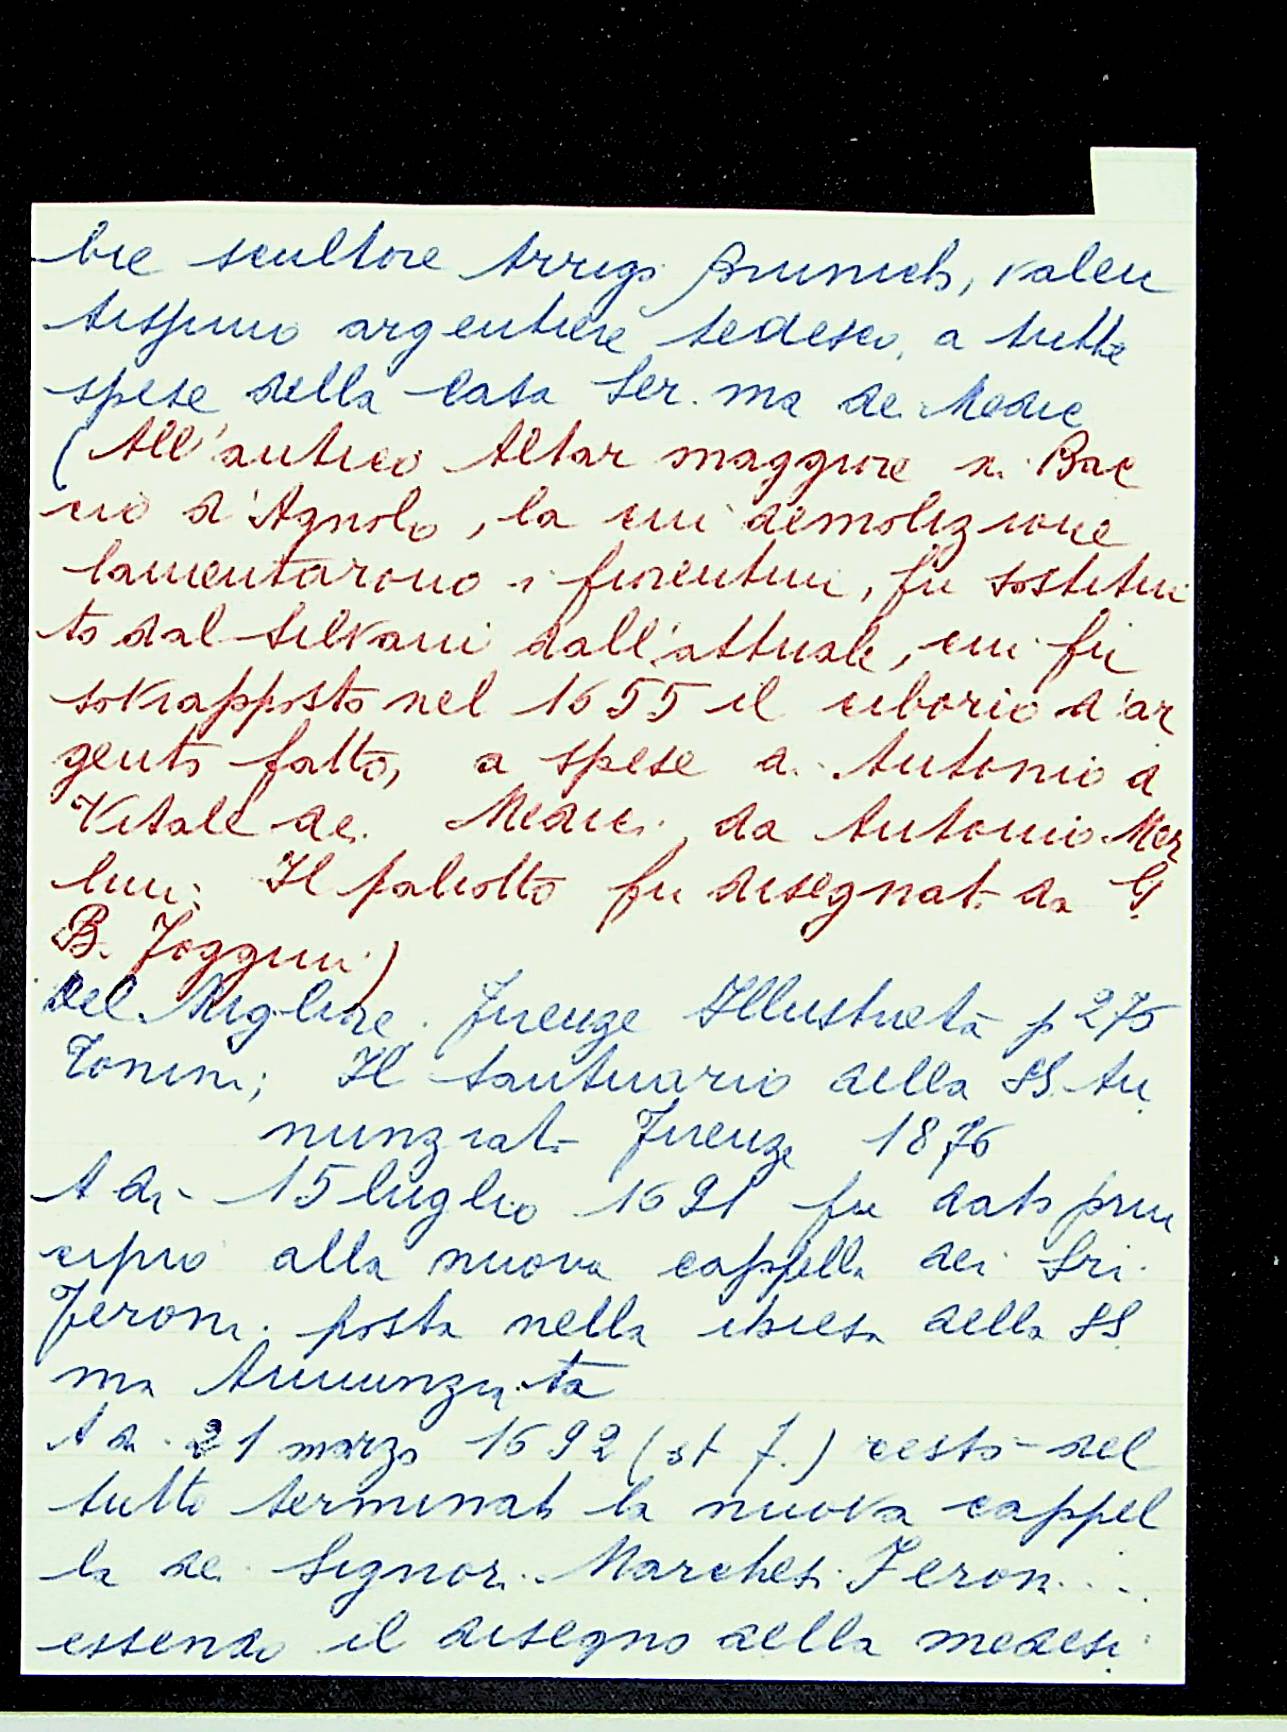 bre scultore Arrigo Brunich, valen
tissimo argentiere tedesco, a tutte
spese della Casa Ser.ma de Medic
(All'antico Altar maggiore di Bac
cio d'Agnolo, la cui demolizione
lamentarono i fiorentini, fu sostitui
to dal Silvani dall'attuale, cui fu
sovrapposto nel 1655 il ciborio d'ar
gento fatto, a spese di Antonio d
Vitale de Medici, da Antonio Mer
lini. Il paliotto fu disegnato da G
B. Foggini)
Del Migliore. Firenze Illustrata p 275
Tonini; Il Santuario della SS. An
nunziata Firenze 1876
A dì 15 luglio 1691 fu dato prin
cipio alla nuova cappella dei Sri
Feroni posta nella chiesa della SS
ma Annunziata
A dì 21 marzo 1692 (st f.) restò del
tutto terminata la nuova cappel
la de Signori Marchesi Feroni...
essendo il disegno della medesi